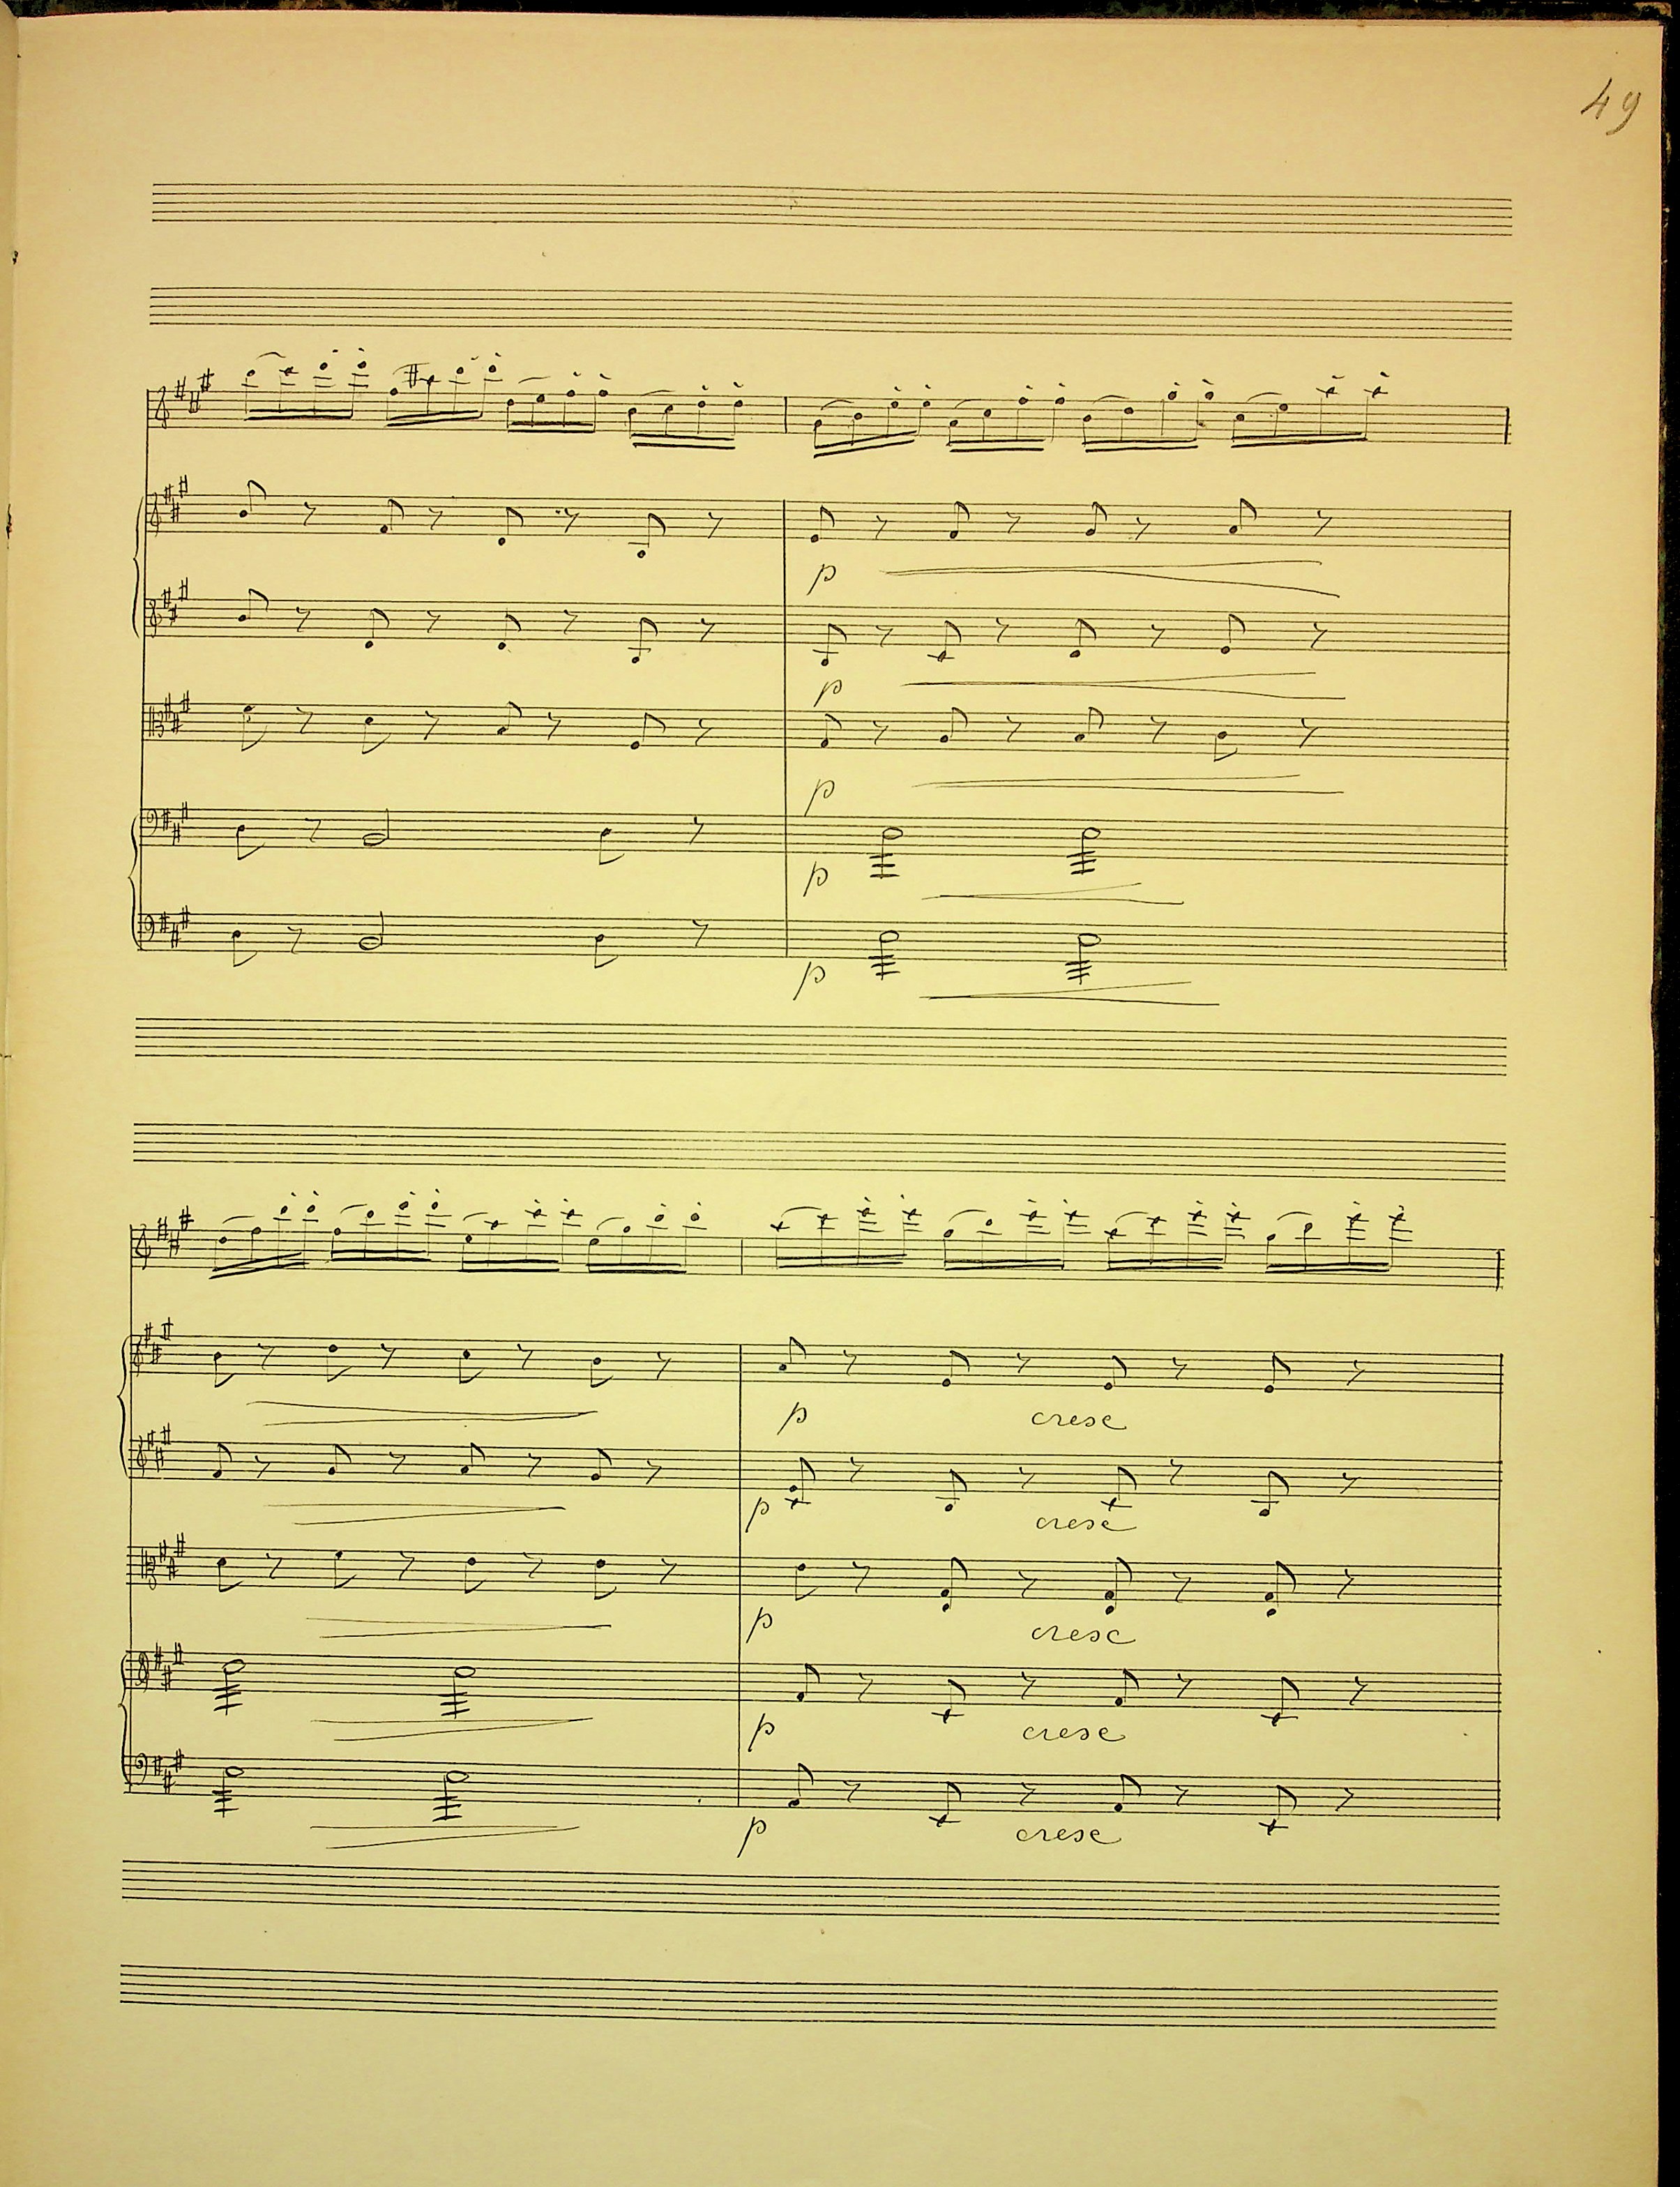 49
p
p
p
p
p
p cresc
p cresc
p cresc
p cresc
p cresc